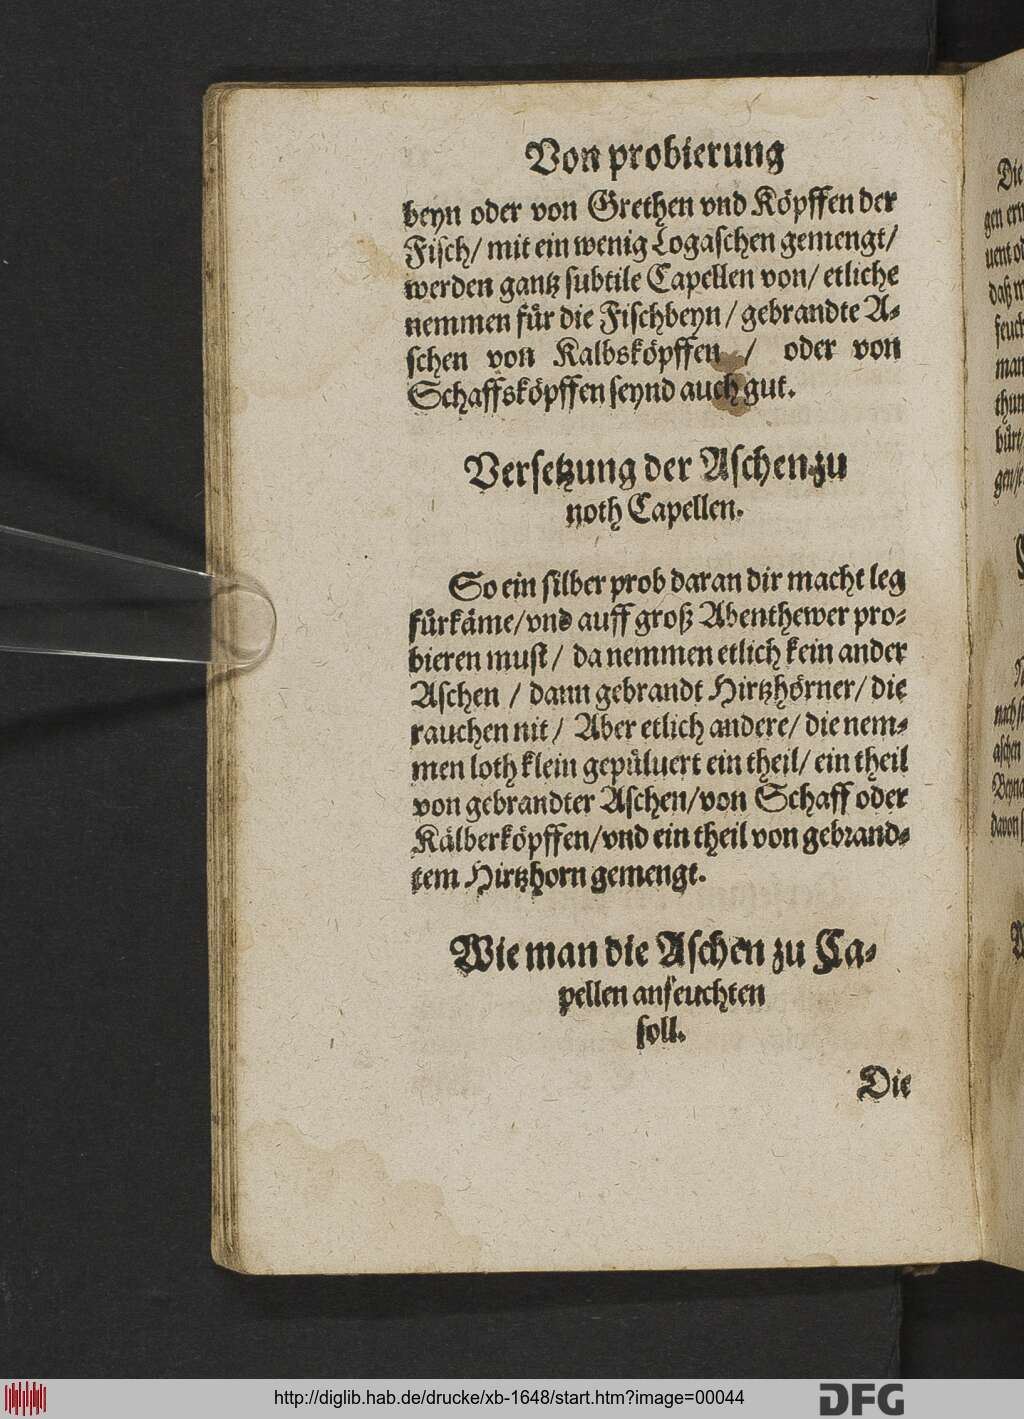 Von probierung
beyn oder von Grethen vnd Köpffen der
Fisch/ mit ein wenig Logaschen gemengt/
werden gantz subtile Capellen von/ etliche
nemmen für die Fischbeyn/ gebrandte A-
schen von Kalbsköpffen / oder von
Schaffsköpffen seynd auch gut.
Versetzung der Aschen zu
noth Capellen.
So ein silber prob daran dir macht leg
fürkäme/ vnd auff groß Abenthewer pro-
bieren must/ da nemmen etlich kein ander
Aschen / dann gebrandt Hirtzhörner/ die
rauchen nit/ Aber etlich andere/ die nem-
men loth klein gepüluert ein theil/ ein theil
von gebrandter Aschen/ von Schaff oder
Kälberköpffen/ vnd ein theil von gebrand-
tem Hirtzhorn gemengt.
Wie man die Aschen zu Ca-
pellen anfeuchten
soll.
Die
http://diglib.hab.de/drucke/xb-1648/start.htm?image=00044
DFG